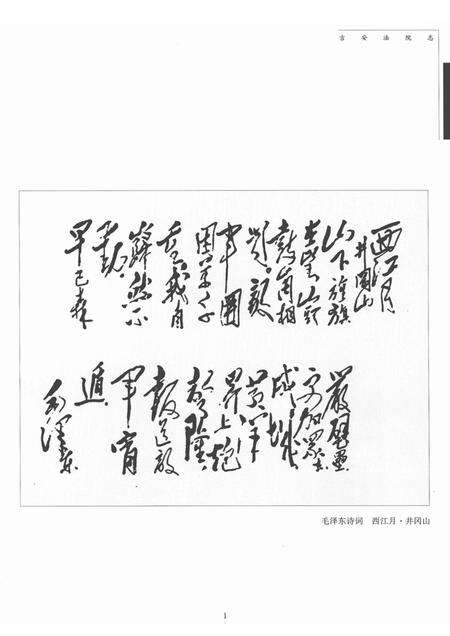 吉安法院志
西江月
井冈山
山下旌旗
在望山头
鼓角相
闻。敌
军围
困万千
重我自
岿然不
动。
早已森
严壁垒
更加众志
成城
黄洋
界上炮
声隆
报道敌
军宵
遁
毛泽东
毛泽东诗词 西江月·井冈山
1